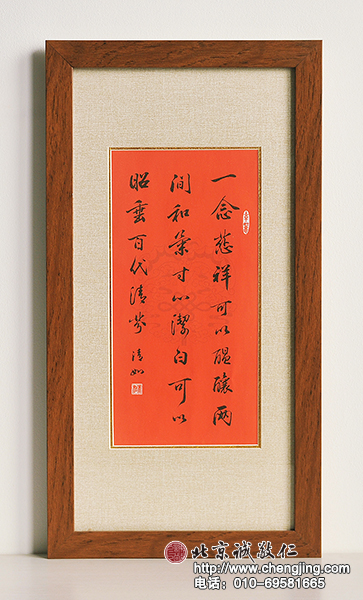 一念慈祥可以醖釀兩
间和氣寸心潔白可以
昭垂百代清芬
清如
北京诚敬仁
www.chengjing.com
电话：010-69581665